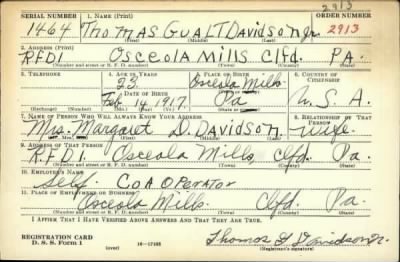 2913
SERIAL NUMBER 1. NAME (Print) ORDER NUMBER
1464 Thomas Gualt Davidson Jr. 2913
(First) (Middle) (Last)
2. ADDRESS (Print)
RFD1 Osceola Mills Clfd. PA.
(Number and street or R. F. D. number) (Town) (County) (State)
3. TELEPHONE 4. AGE IN YEARS 5. PLACE OF BIRTH 6. COUNTRY OF CITIZENSHIP
23 Osceola Mills
DATE OF BIRTH (Town or county)
Feb 14 1917 Pa U.S.A.
(Exchange) (Number) (Mo.) (Day) (Yr.) (State or country)
7. NAME OF PERSON WHO WILL ALWAYS KNOW YOUR ADDRESS 8. RELATIONSHIP OF THAT PERSON
Mrs. Margaret D. Davidson wife
(Mr., Mrs., Miss) (First) (Middle) (Last)
9. ADDRESS OF THAT PERSON
R.F.D.1 Osceola Mills, Clfd. Pa.
(Number and street or R. F. D. number) (Town) (County) (State)
10. EMPLOYER'S NAME
Self
11. PLACE OF EMPLOYMENT OR BUSINESS
Osceola Mills Clfd. Pa.
(Number and street or R. F. D. number) (Town) (County) (State)
I AFFIRM THAT I HAVE VERIFIED ABOVE ANSWERS AND THAT THEY ARE TRUE.
REGISTRATION CARD
D. S. S. Form 1 (over) 16—17105 Thomas G Davidson Jr.
(Registrant's signature)